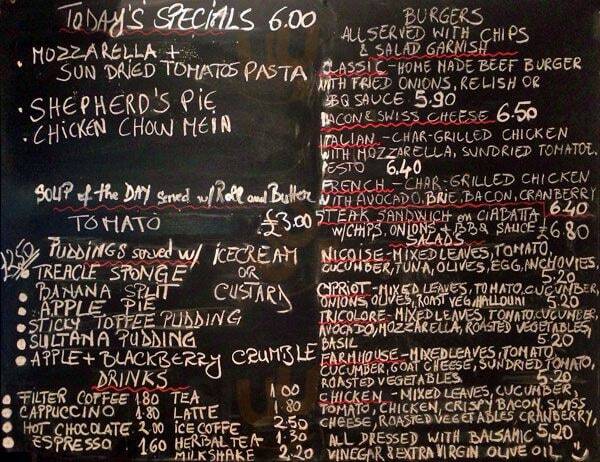 TODAY'S SPECIALS 6.00
• MOZZARELLA +
SUN DRIED TOMATOS PASTA
• SHEPHERD'S PIE
• CHICKEN CHOW MEIN
SOUP of the DAY served w/ Roll and Butter
TOMATO £3.00
PUDDINGS served w/ ICECREAM
OR
CUSTARD
• TREACLE SPONGE
• BANANA SPLIT
• APPLE PIE
• STICKY TOFFEE PUDDING
• SULTANA PUDDING
• APPLE + BLACKBERRY CRUMBLE
DRINKS
• FILTER COFFEE 1.80 TEA 1.00
• CAPPUCCINO 1.80 LATTE 1.80
• HOT CHOCOLATE 2.00 ICE COFFE 2.50
• ESPRESSO 1.60 HERBAL TEA 1.30
MILKSHAKE 2.20
BURGERS
ALL SERVED WITH CHIPS
& SALAD GARNISH
CLASSIC - HOME MADE BEEF BURGER
WITH FRIED ONIONS, RELISH OR
BBQ SAUCE 5.90
BACON & SWISS CHEESE 6.50
ITALIAN - CHAR-GRILLED CHICKEN
WITH MOZZARELLA, SUNDRIED TOMATOE
PESTO 6.40
FRENCH - CHAR-GRILLED CHICKEN
WITH AVOCADO, BRIE, BACON, CRANBERRY
6.40
STEAK SANDWICH on CIABATTA
W/CHIPS, ONIONS + BBQ SAUCE 6.80
SALADS
NICOISE - MIXED LEAVES, TOMATO,
CUCUMBER, TUNA, OLIVES, EGG, ANCHOVIES,
5.20
CYPRIOT - MIXED LEAVES, TOMATO, CUCUMBER,
ONIONS, OLIVES, ROAST VEG, HALLOUMI 5.20
TRICOLORE - MIXED LEAVES, TOMATO, CUCUMBER,
AVOCADO, MOZZARELLA, ROASTED VEGETABLES,
BASIL 5.20
FARMHOUSE - MIXED LEAVES, TOMATO,
CUCUMBER, GOAT CHEESE, SUNDRIED TOMATO,
ROASTED VEGETABLES 5.20
CHICKEN - MIXED LEAVES, CUCUMBER,
TOMATO, CHICKEN, CRISPY BACON, SWISS
CHEESE, ROASTED VEGETABLES CRANBERRY,
5.20
ALL DRESSED WITH BALSAMIC
VINEGAR & EXTRA VIRGIN OLIVE OIL